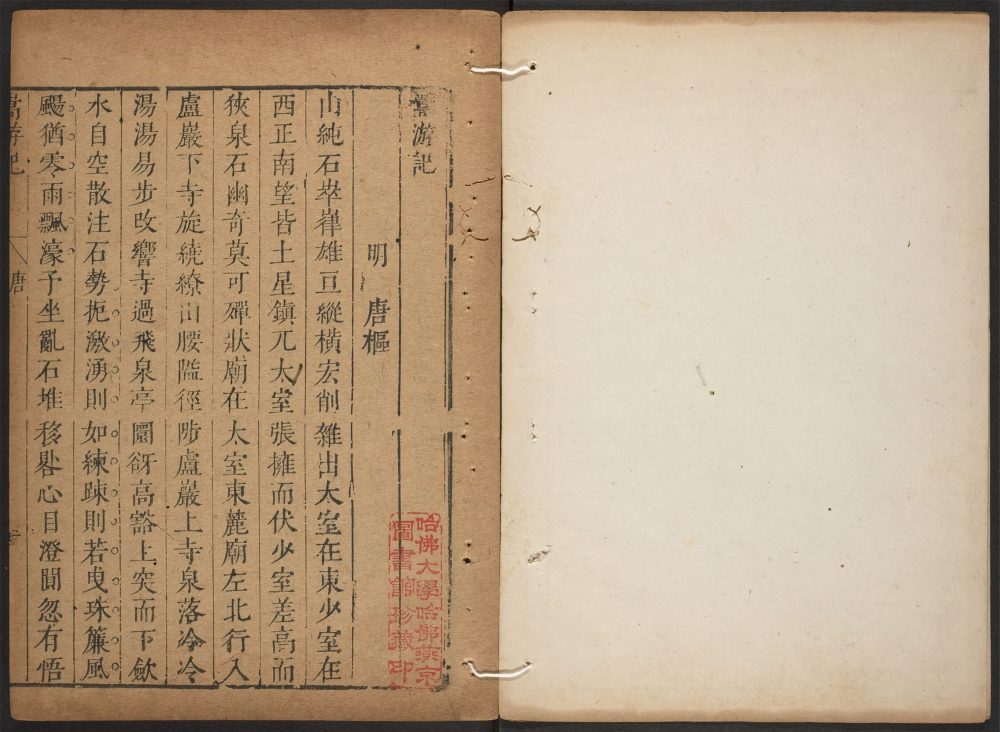 嵩游記
明 唐樞
山純石崒嵂雄亘縱橫宏削雜出太室在東少室在
西正南望皆土星鎮兀太室張擁而伏少室差高而
狹泉石幽奇莫可殫狀廟在太室東麓廟左北行入
盧巖下寺旋繞繚山腰隘徑陟盧巖上寺泉落冷冷
湯湯易步改響寺過飛泉亭圍谺高豁上突而下歛
水自空散注石勢扼激湧則如練踈則若曳珠簾風
颺猶零雨飄濛予坐亂石堆移晷心目澄閒忽有悟
嵩游記
唐
哈佛大學哈佛燕京
圖書館珍藏印